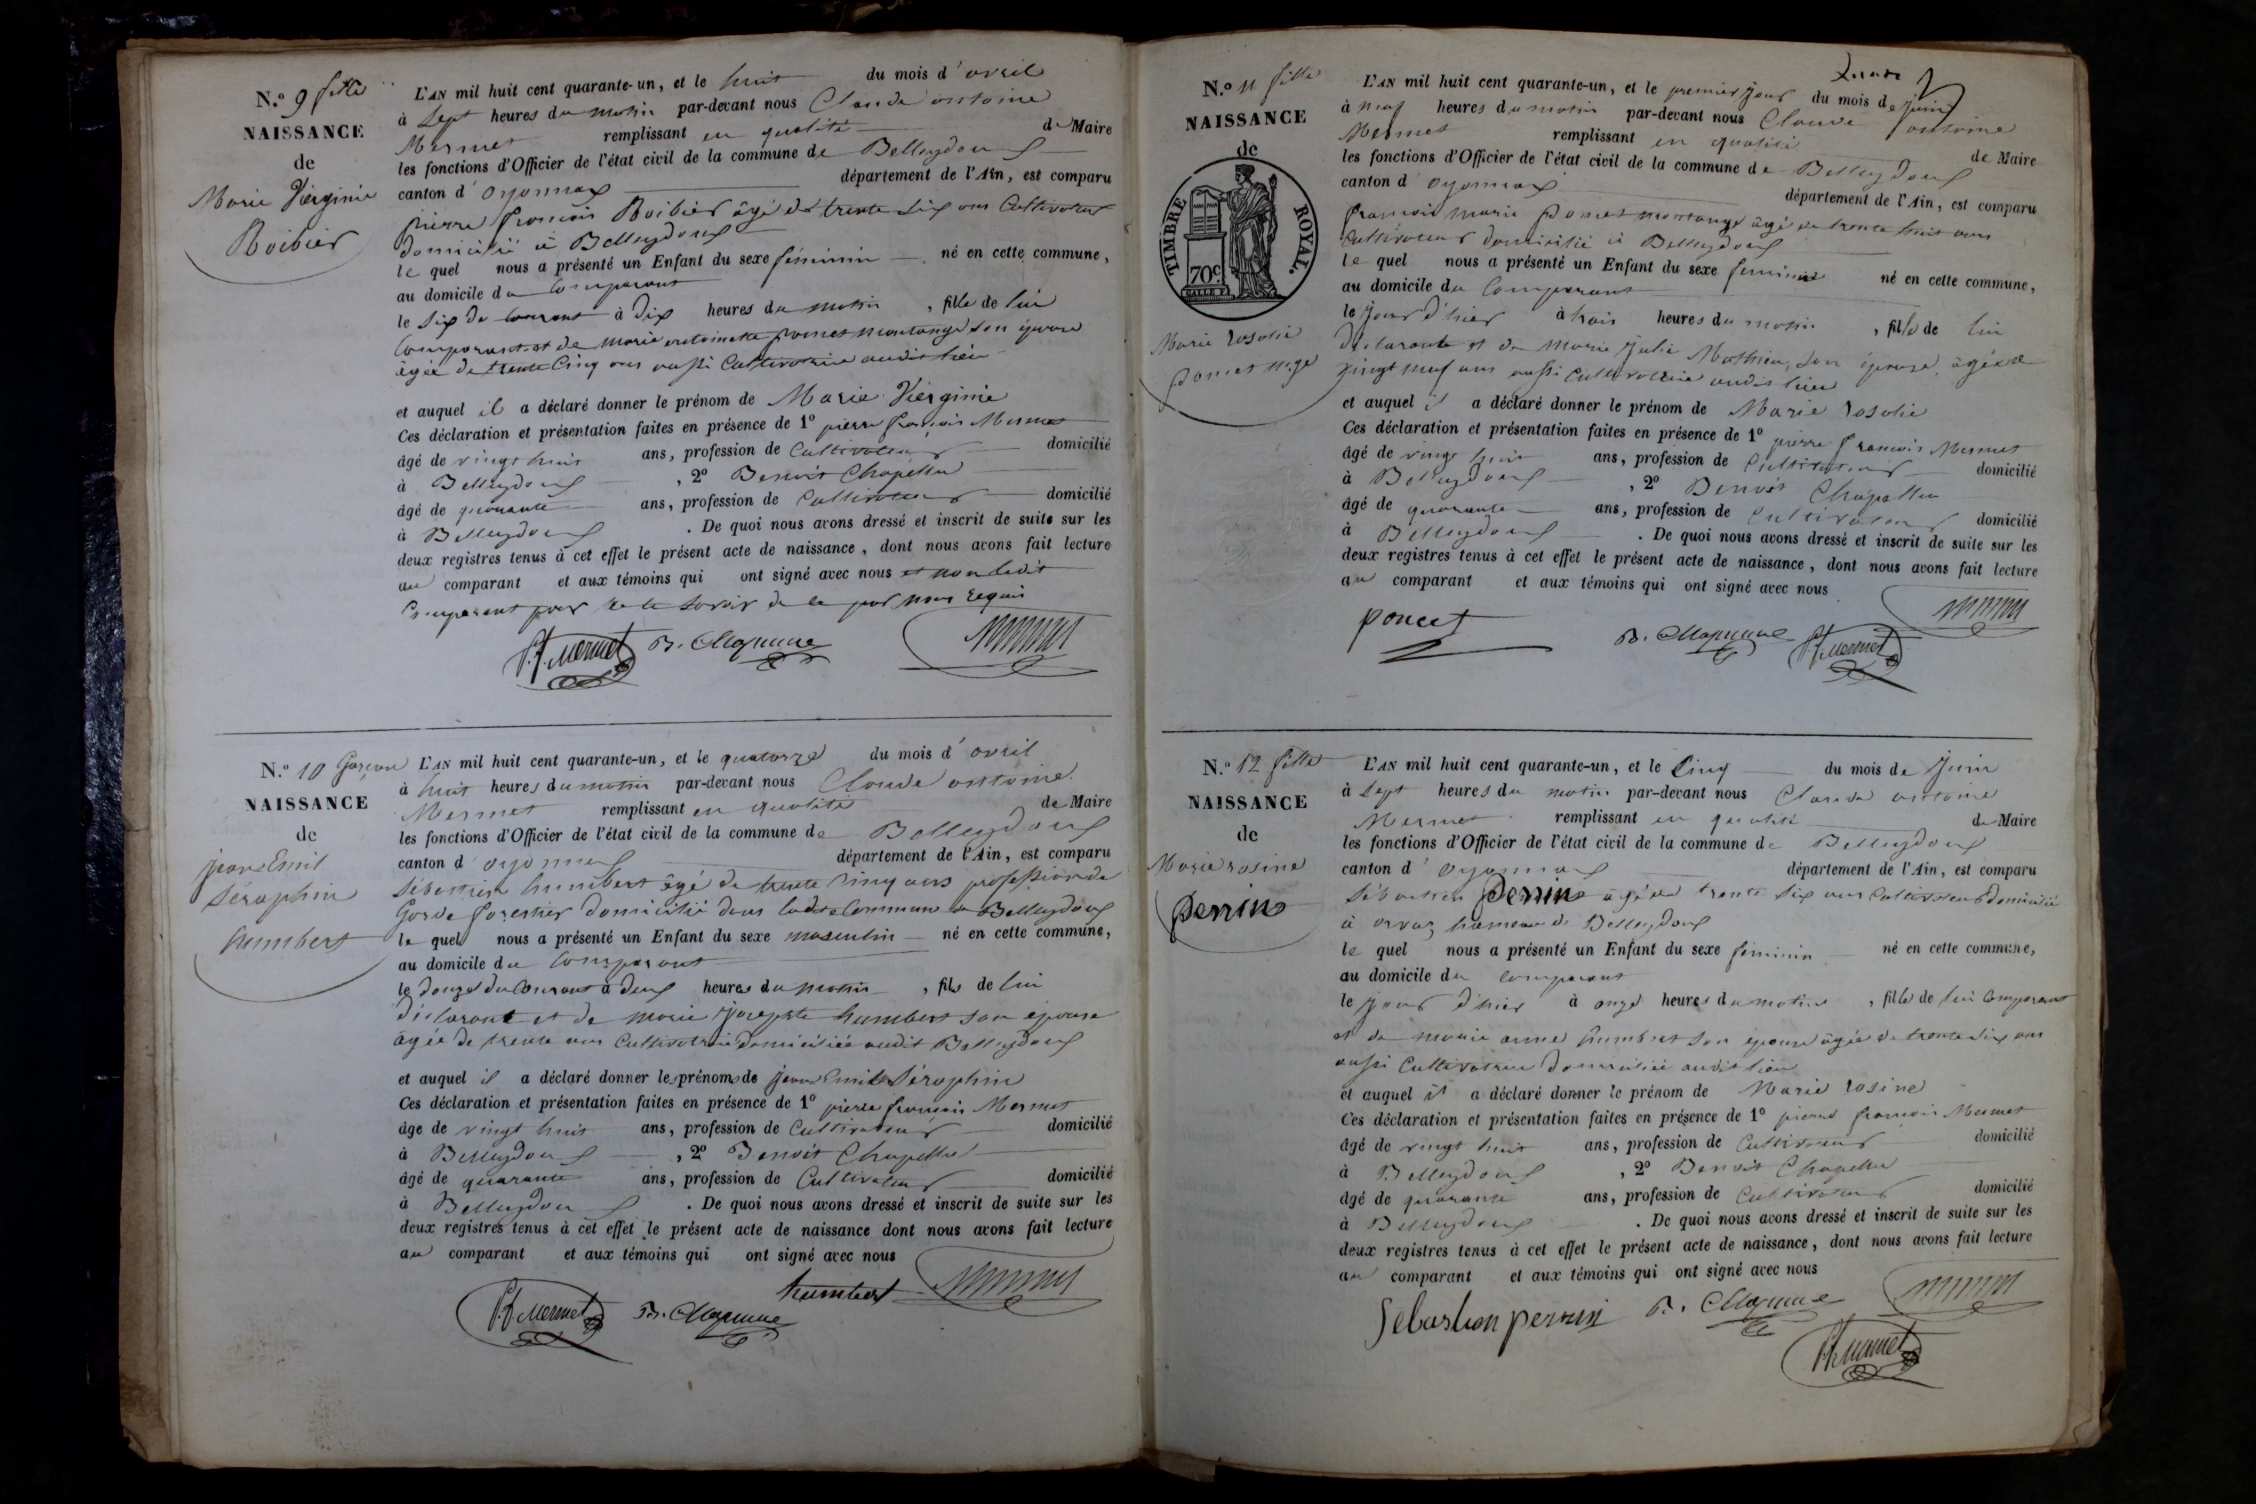 N.o 9 fille
NAISSANCE
de
Marie Virginie
Roibier
L'AN mil huit cent quarante-un, et le huit du mois d'avril
à sept heures du matin par-devant nous Claude antoine
Mermet remplissant en qualité de Maire
les fonctions d'Officier de l'état civil de la commune de Belleydoux
canton d'oyonnax département de l'Ain, est comparu
pierre françois Roibier âgé de trente six ans Cultivateur
domicilié à Belleydoux
le quel nous a présenté un Enfant du sexe féminin né en cette commune,
au domicile du Comparant
le six du courant à dix heures du matin, fille de lui
Comparant et de marie antoinette poncet montange son épouse
âgée de trente Cinq ans aussi Cultivatrice audit lieu
et auquel il a déclaré donner le prénom de Marie Virginie
Ces déclaration et présentation faites en présence de 1o pierre françois Mermet
âgé de vingt huit ans, profession de Cultivateur domicilié
à Belleydoux, 2o Benoit Chapellu
âgé de quarante ans, profession de Cultivateur domicilié
à Belleydoux. De quoi nous avons dressé et inscrit de suite sur les
deux registres tenus à cet effet le présent acte de naissance, dont nous avons fait lecture
au comparant et aux témoins qui ont signé avec nous et non ledit
Comparant pour ne le savoir de ce par nous requis
P.f. Mermet B. Chapellue Mermet
N.o 10 Garçon
NAISSANCE
de
jean Emil
Séraphin
humbert
L'AN mil huit cent quarante-un, et le quatorze du mois d'avril
à huit heures du matin par-devant nous Claude antoine
Mermet remplissant en qualité de Maire
les fonctions d'Officier de l'état civil de la commune de Belleydoux
canton d'oyonnax département de l'Ain, est comparu
Sébastien humbert âgé de trente cinq ans profession de
Garde forestier domicilié dans ladite Commune de Belleydoux
le quel nous a présenté un Enfant du sexe masculin né en cette commune,
au domicile du Comparant
le douze du Courant à deux heures du matin, fils de lui
déclarant et de marie josephte humbert son épouse
âgée de trente ans Cultivatrice domiciliée audit Belleydoux
et auquel il a déclaré donner les prénoms de jean Emile Séraphin
Ces déclaration et présentation faites en présence de 1o pierre françois Mermet
âge de vingt huit ans, profession de Cultivateur domicilié
à Belleydoux, 2o Benoit Chapellu
âgé de quarante ans, profession de Cultivateur domicilié
à Belleydoux. De quoi nous avons dressé et inscrit de suite sur les
deux registres tenus à cet effet le présent acte de naissance dont nous avons fait lecture
au comparant et aux témoins qui ont signé avec nous
humbert Mermet
P.f. Mermet B. Chapellue
N.o 11 fille
NAISSANCE
de
TIMBRE ROYAL.
70c
Marie rosalie
poncet mge
L'AN mil huit cent quarante-un, et le premier jour du mois de juin
à neuf heures du matin par-devant nous Claude antoine
Mermet remplissant en qualité de Maire
les fonctions d'Officier de l'état civil de la commune de Belleydoux
canton d'oyonnax département de l'Ain, est comparu
françois marie poncet montange âgé de trente huit ans
Cultivateur domicilié à Belleydoux
le quel nous a présenté un Enfant du sexe féminin né en cette commune,
au domicile du Comparant
le jour d'hier à trois heures du matin, fille de lui
déclarant et de marie julie Mathieu, son épouse, âgée de
vingt neuf ans aussi Cultivatrice audit lieu
et auquel il a déclaré donner le prénom de Marie rosalie
Ces déclaration et présentation faites en présence de 1o pierre françois Mermet
âgé de vingt huit ans, profession de Cultivateur domicilié
à Belleydoux, 2o Benoit Chapellu
âgé de quarante ans, profession de Cultivateur domicilié
à Belleydoux. De quoi nous avons dressé et inscrit de suite sur les
deux registres tenus à cet effet le présent acte de naissance, dont nous avons fait lecture
au comparant et aux témoins qui ont signé avec nous
poncet B. Chapellue P.f. Mermet Mermet
N.o 12 fille
NAISSANCE
de
Marie rosine
perrin
L'AN mil huit cent quarante-un, et le cinq du mois de juin
à sept heures du matin par-devant nous Claude antoine
Mermet remplissant en qualité de Maire
les fonctions d'Officier de l'état civil de la commune de Belleydoux
canton d'oyonnax département de l'Ain, est comparu
Sébastien perrin âgé de trente six ans Cultivateur domicilié
à orvaz hameau de Belleydoux
le quel nous a présenté un Enfant du sexe féminin né en cette commune,
au domicile du comparant
le jour d'hier à onze heures du matin, fille de lui Comparant
et de marie anne humbert son épouse âgée de trente six ans
aussi Cultivatrice domiciliée audit lieu
et auquel il a déclaré donner le prénom de Marie rosine
Ces déclaration et présentation faites en présence de 1o pierre françois Mermet
âgé de vingt huit ans, profession de Cultivateur domicilié
à Belleydoux, 2o Benoit Chapellu
âgé de quarante ans, profession de Cultivateur domicilié
à Belleydoux. De quoi nous avons dressé et inscrit de suite sur les
deux registres tenus à cet effet le présent acte de naissance, dont nous avons fait lecture
au comparant et aux témoins qui ont signé avec nous
Sebastien perrin B. Chapellue Mermet
P.f. Mermet